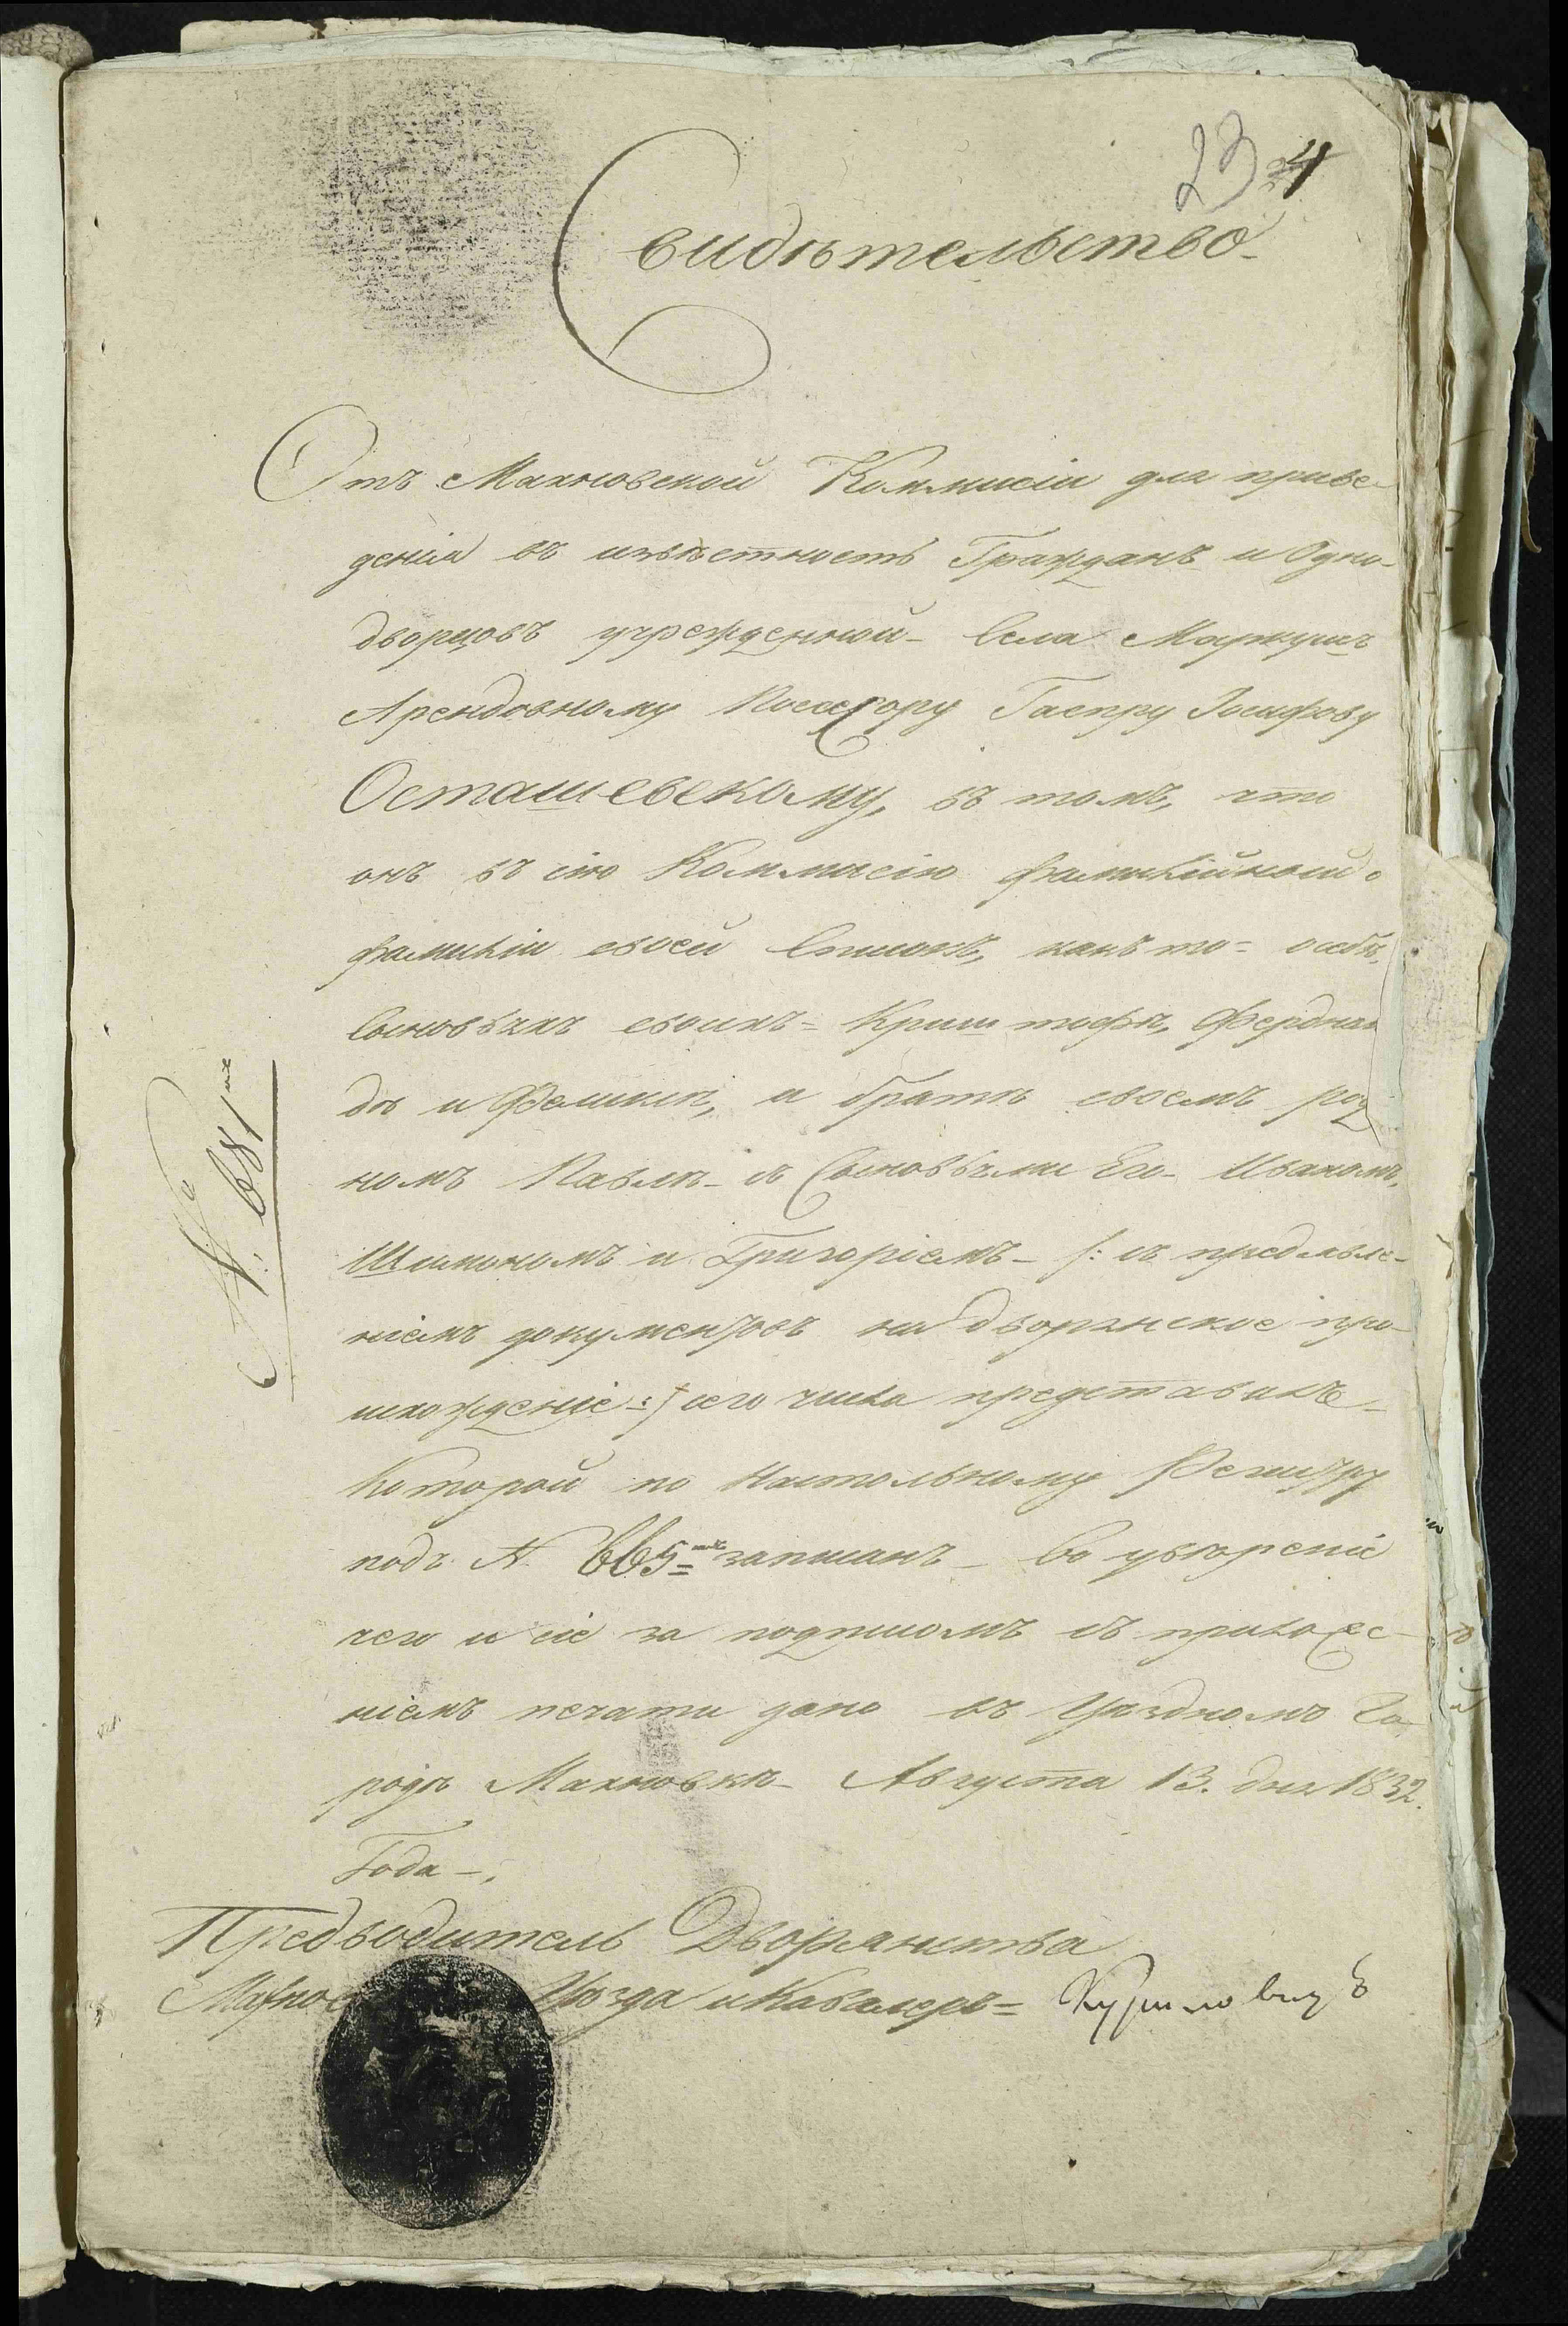 23 4
Свидѣтельство
Отъ Махновской Коммисіи для приве-
денія въ извѣстность Гражданъ и Одно-
дворцовъ учрежденной Села Маркушъ
Арендовному Посессору Гаспру Іосифову
Осташевскому, въ томъ, что
онъ въ сію Коммисію фамилійной о
фамиліи своей Списокъ, какъ то= особѣ,
Сыновьяхъ своихъ= Криштофѣ, Фердинан
дѣ и Феликсѣ, и братѣ своемъ род
номъ Павлѣ- съ Сыновьями Его- Иваномъ,
Шимономъ и Григоріемъ- /: съ предъявле-
ніемъ документовъ на дворянское про-
исхожденіе :/ сего числа представилъ-
Которой по Настольному Регистру
подъ N. 665= записанъ- Во увѣреніе
чего и сіе за подписомъ съ приложе-
ніемъ печати дано въ Уѣздномъ Го-
родѣ Махновкѣ- Августа 13. дня 1832.
Года-.
Предводитель Дворянства
Уѣзда и Кавалеръ=
N: 681